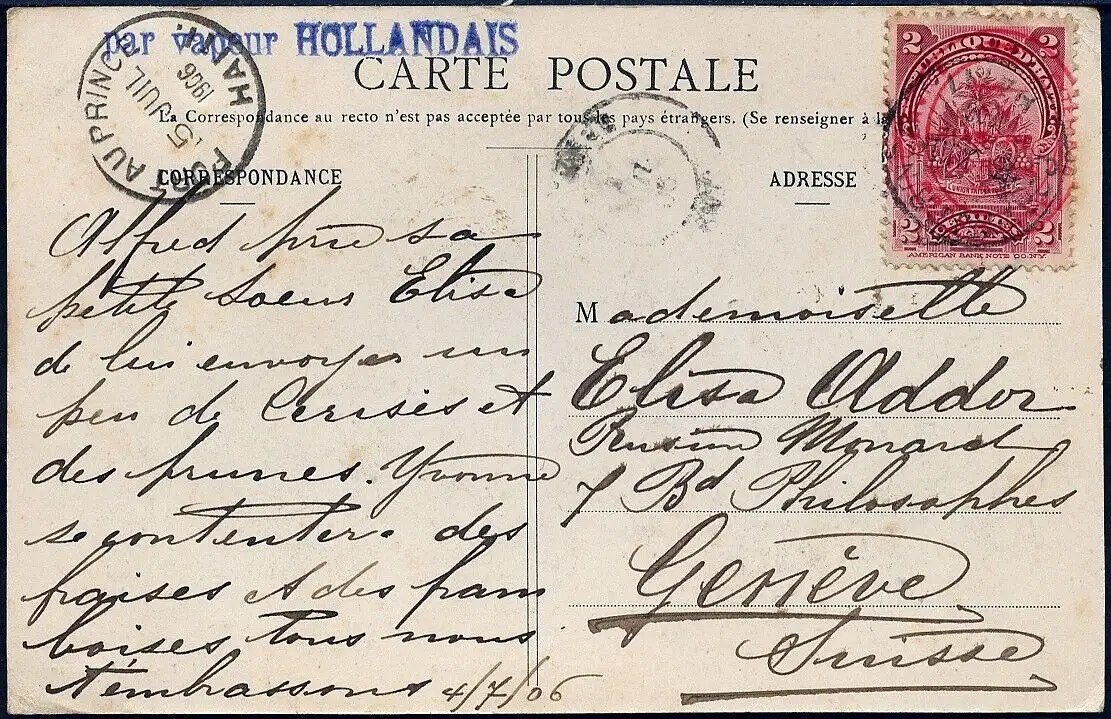 par vapeur HOLLANDAIS
CARTE POSTALE
La Correspondance au recto n'est pas acceptée par tous les pays étrangers. (Se renseigner à la
PORT AU PRINCE HAITI
5 JUIL
1906
CORRESPONDANCE
Alfred prie sa
petite soeur Elisa
de lui envoyer un
peu de Cerises et
des prunes. Yvonne
se contentera des
fraises et des fram
boises tous nous
t'embrassons 4/7/06
ADRESSE
Mademoiselle
Elisa Addor
Monard
7 Bd Philosophes
Genève
Suisse
2 2
2 2
AMERICAN BANK NOTE CO. N.Y.